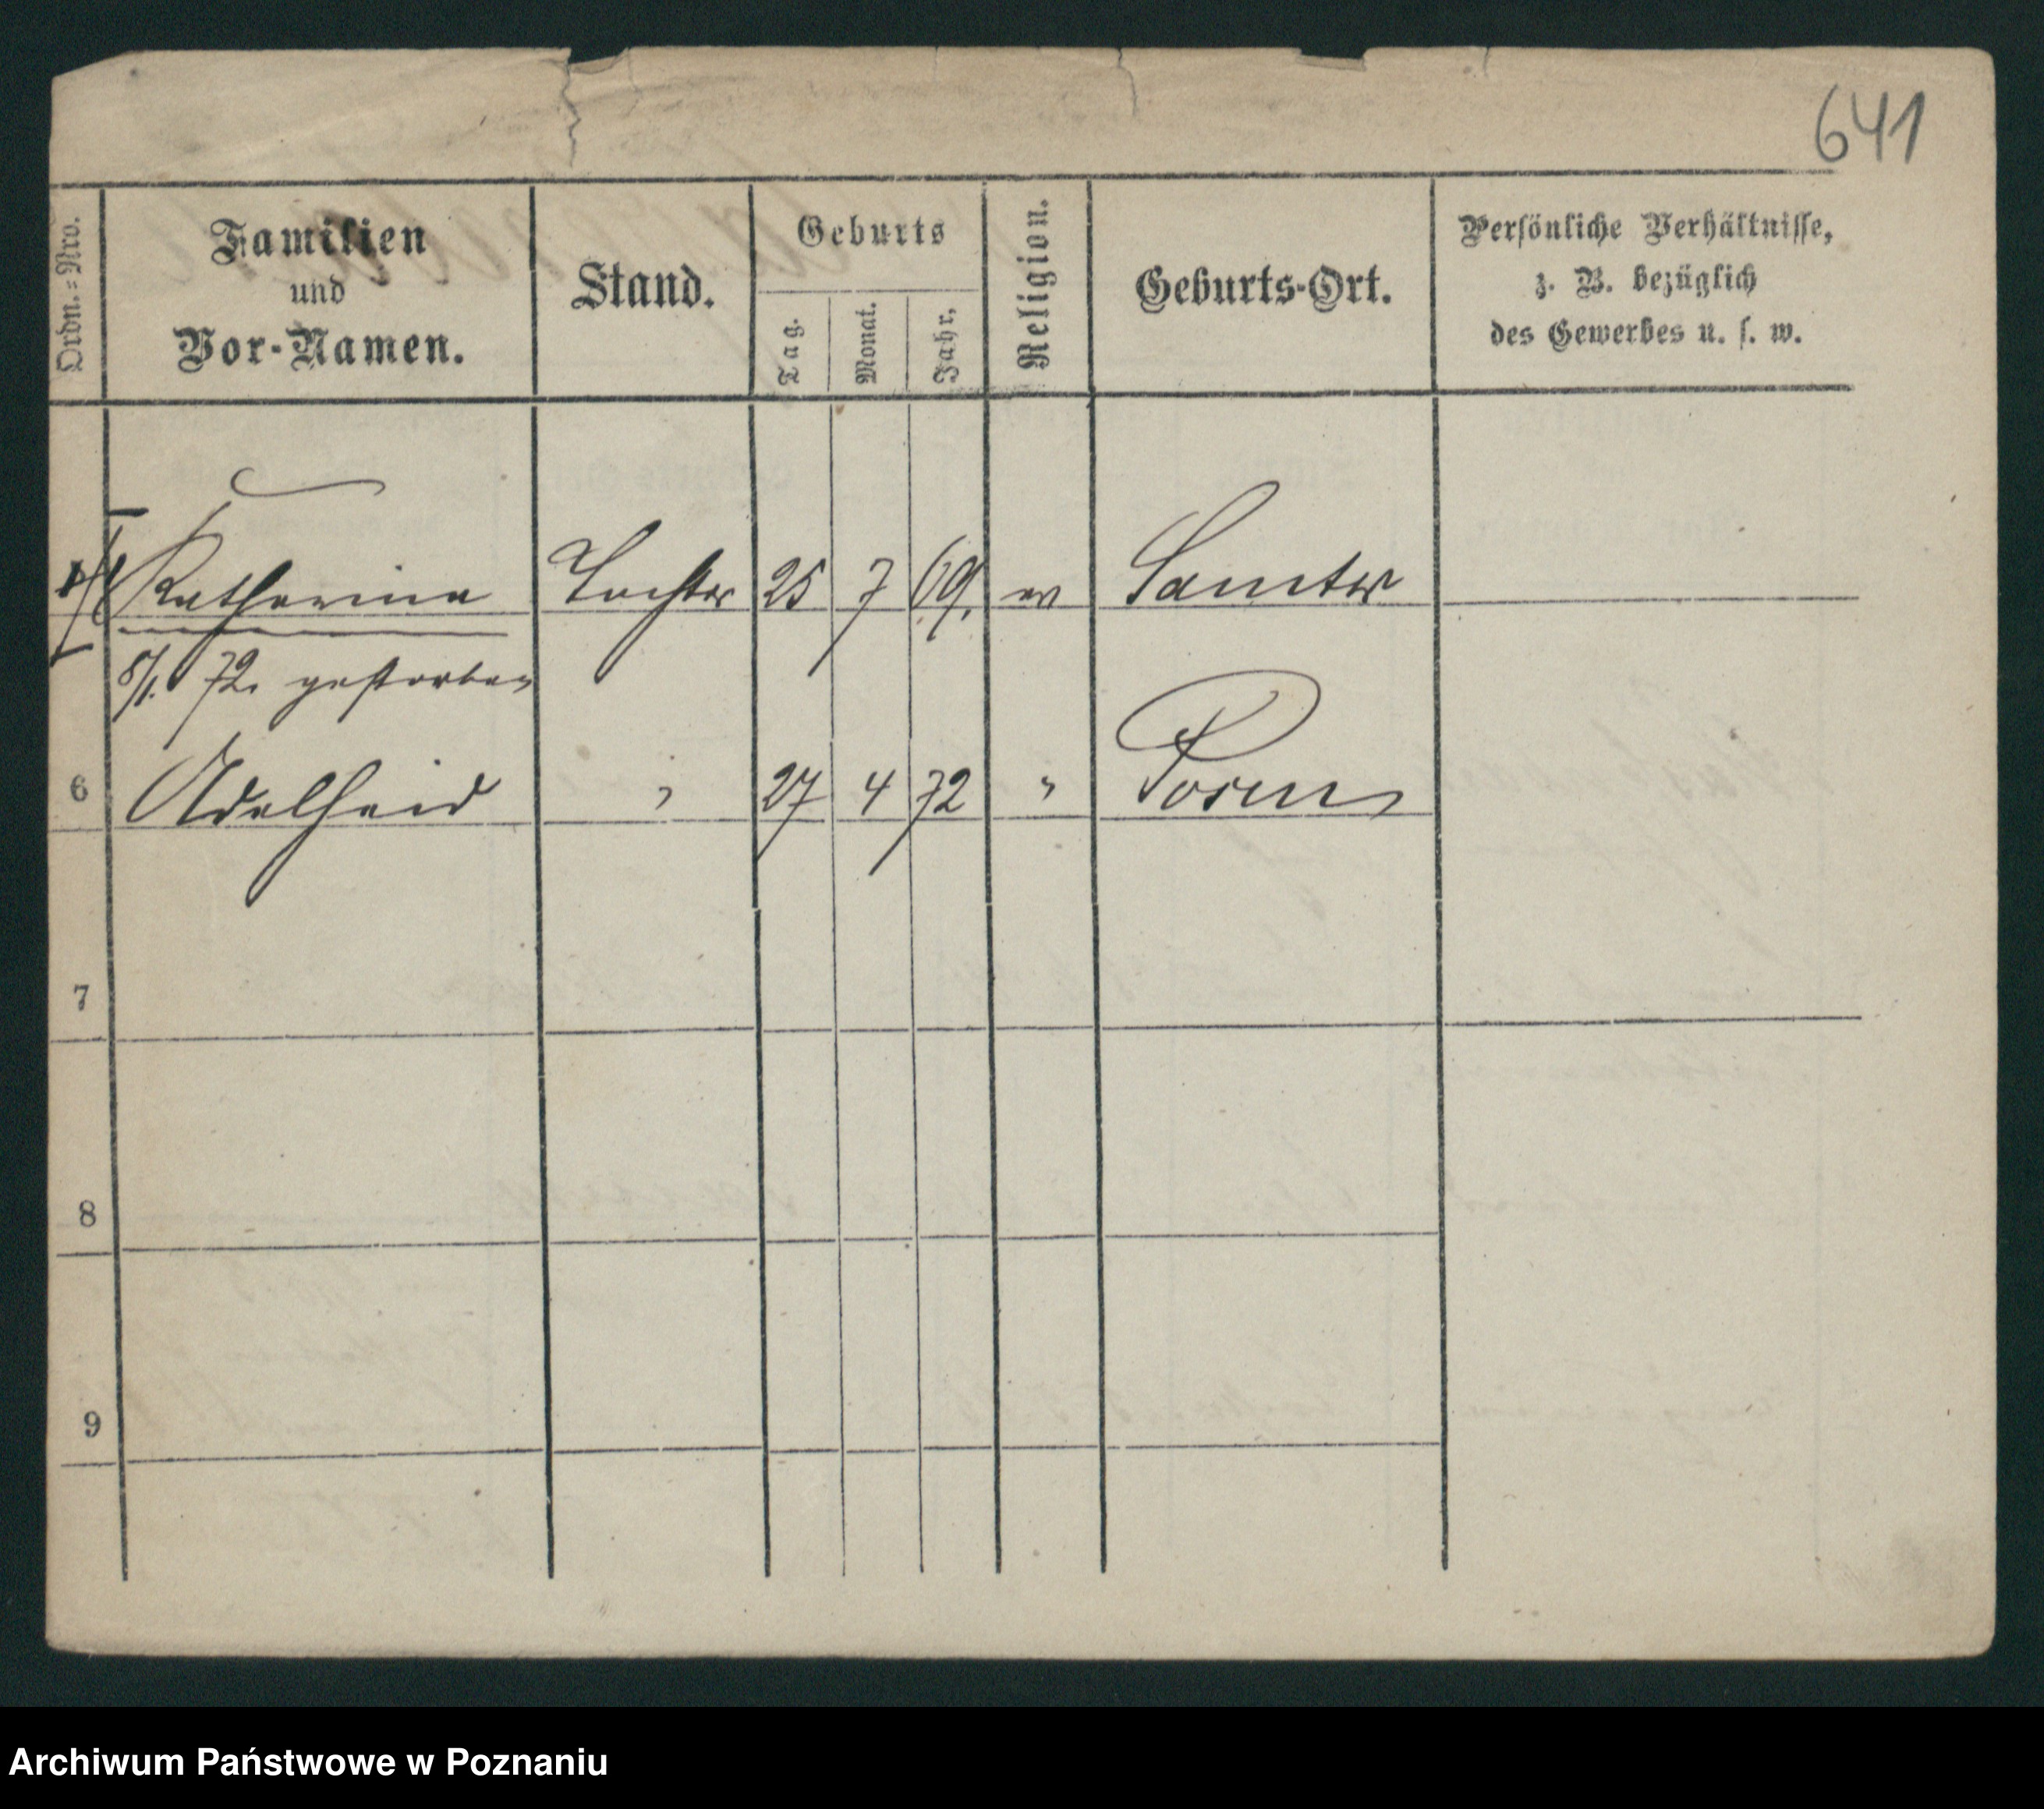 641
Ordn.=Nro.
Familien
und
Vor-Namen.
Stand.
Geburts
Tag.
Monat.
Jahr.
Religion.
Geburts-Ort.
Persönliche Verhältnisse,
z. B. bezüglich
des Gewerbes u. s. w.
Katharina Tochter 25 7 69. ev Samter
8/1. 72. gestorben
6 Adelheid " 27 4 72 " Posen
7
8
9
Archiwum Państwowe w Poznaniu